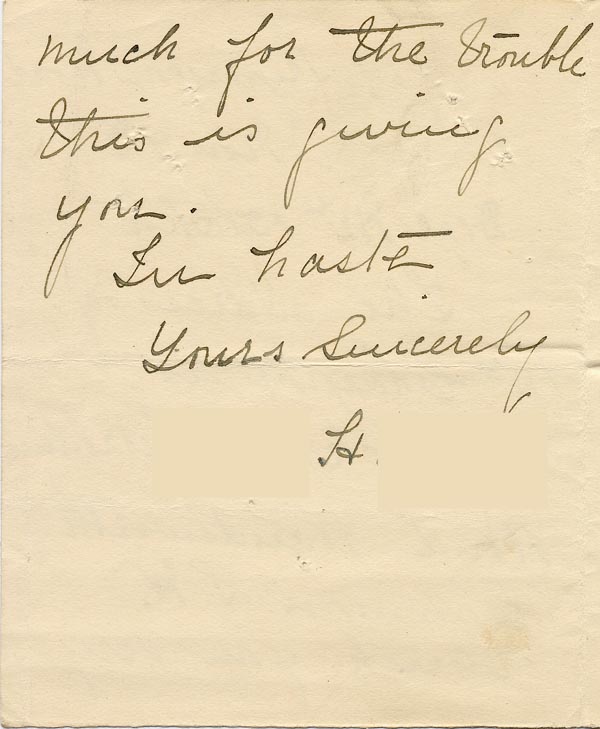 much for the trouble
this is giving
you.
In haste
Yours Sincerely
H.